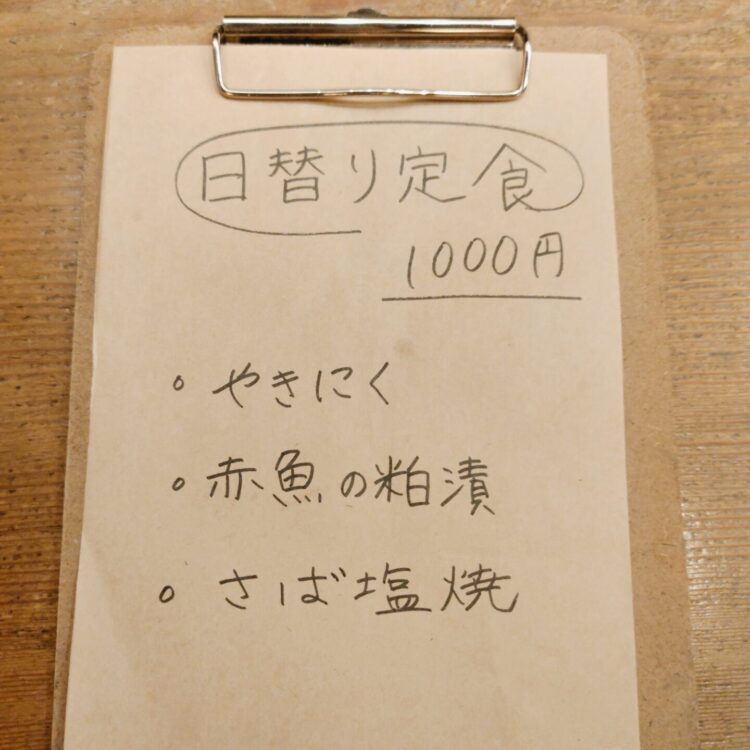 日替り定食
1000円
・やきにく
・赤魚の粕漬
・さば塩焼